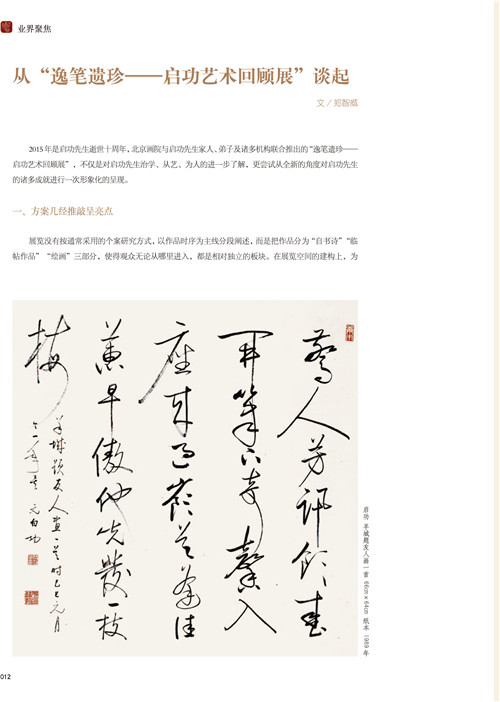 业界聚焦
从“逸笔遗珍——启功艺术回顾展”谈起
文／郑智威
2015年是启功先生逝世十周年，北京画院与启功先生家人、弟子及诸多机构联合推出的“逸笔遗珍——
启功艺术回顾展”，不仅是对启功先生治学、从艺、为人的进一步了解，更尝试从全新的角度对启功先生
的诸多成就进行一次形象化的呈现。
一、方案几经推敲呈亮点
展览没有按通常采用的个案研究方式，以作品时序为主线分段阐述，而是把作品分为“自书诗”“临
帖作品”“绘画”三部分，使得观众无论从哪里进入，都是相对独立的板块。在展览空间的建构上，为
驚人芳訊領春
開筆下奇馨入
座來
早傲他先發一枝
梅
羊城題友人畫一首時己巳元月
元白功
启功 羊城题友人画一首 66cm×64cm 纸本 1989年
012